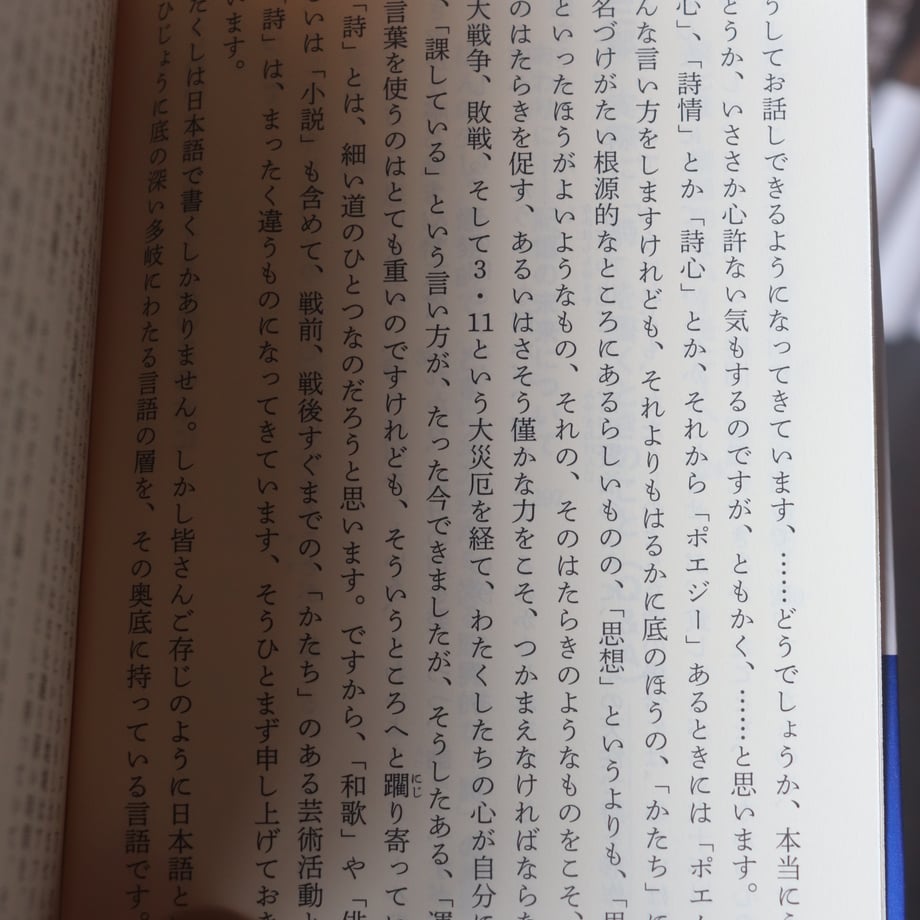 うしてお話しできるようになってきています、……どうでしょうか、本当に
とうか、いささか心許ない気もするのですが、ともかく、……と思います。
心」、「詩情」とか「詩心」とか、それから「ポエジー」あるときには「ポエム
んな言い方をしますけれども、それよりもはるかに底のほうの、「かたち」に
名づけがたい根源的なところにあるらしいものの、「思想」というよりも、「思
といったほうがよいようなもの、それの、そのはたらきのようなものをこそ、
のはたらきを促す、あるいはさそう僅かな力をこそ、つかまえなければならな
大戦争、敗戦、そして3・11という大災厄を経て、わたくしたちの心が自分に
、「課している」という言い方が、たった今できましたが、そうしたある、「運
言葉を使うのはとても重いのですけれども、そういうところへと躙り寄ってい
「詩」とは、細い道のひとつなのだろうと思います。ですから、「和歌」や「俳
いは「小説」も含めて、戦前、戦後すぐまでの、「かたち」のある芸術活動と
「詩」は、まったく違うものになってきています、そうひとまず申し上げてお
います。
たくしは日本語で書くしかありません。しかし皆さんご存じのように日本語と
ひじょうに底の深い多岐にわたる言語の層を、その奥底に持っている言語です。